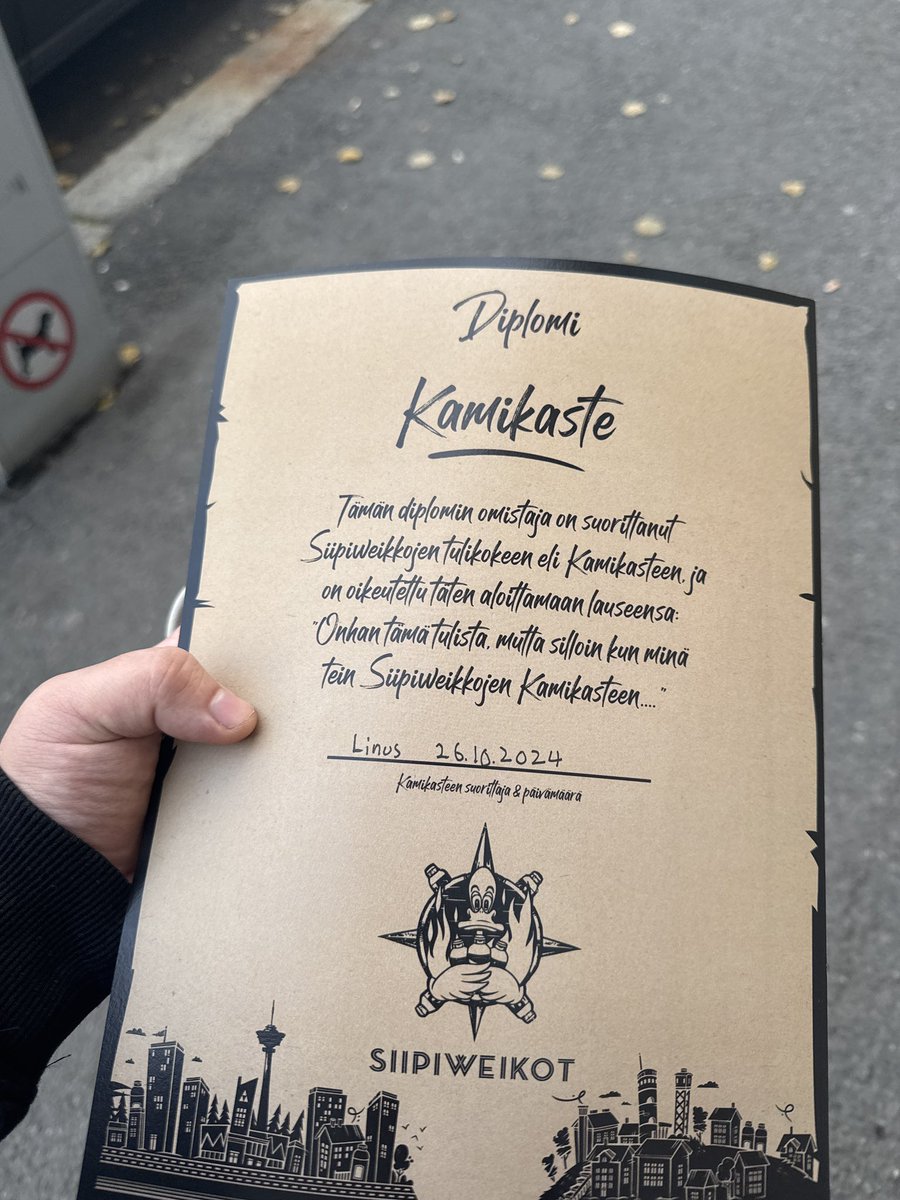 Diplomi
Kamikaste
Tämän diplomin omistaja on suorittanut
Siipiweikkojen tulikokeen eli Kamikasteen, ja
on oikeutettu täten aloittamaan lauseensa:
"Onhan tämä tulista, mutta silloin kun minä
tein Siipiweikkojen Kamikasteen...."
Linus 26.10.2024
Kamikasteen suorittaja & päivämäärä
SIIPIWEIKOT